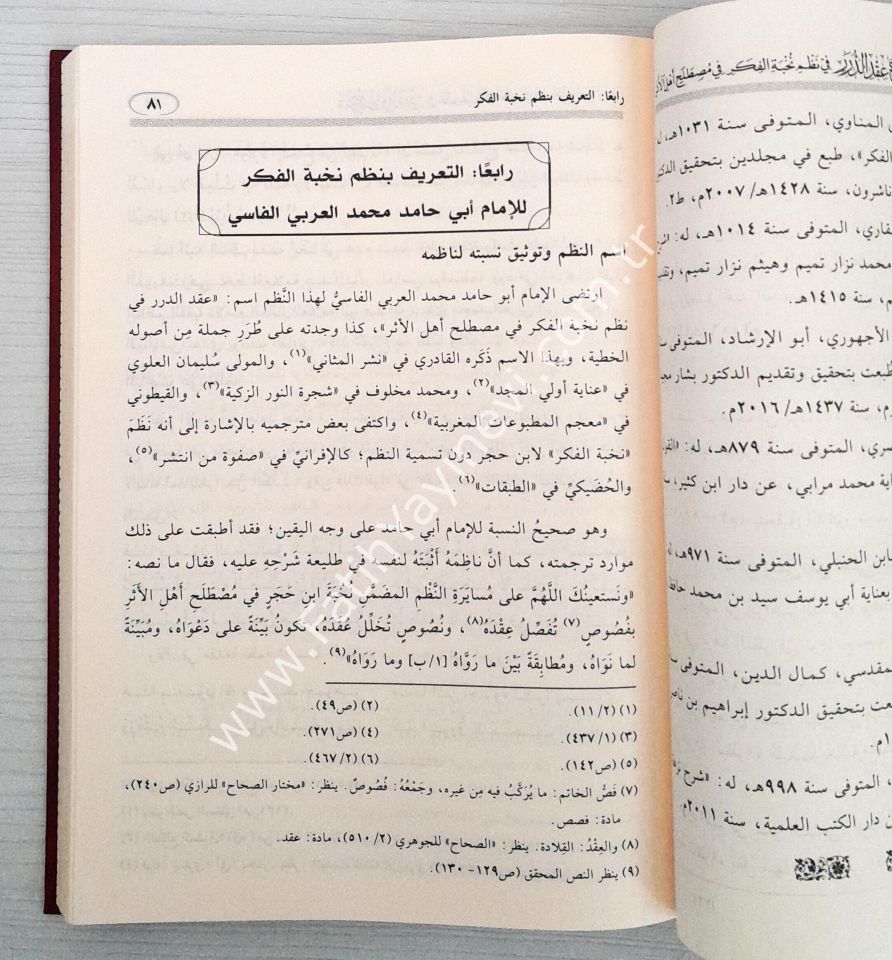 رابعًا: التعريف بنظم نخبة الفكر
٨١
رابعًا: التعريف بنظم نخبة الفكر
للإمام أبي حامد محمد العربي الفاسي
اسم النظم وتوثيق نسبته لناظمه
ارتضى الإمام أبو حامد محمد العربي الفاسيُّ لهذا النَّظم اسم: «عقد الدرر في
نظم نخبة الفكر في مصطلح أهل الأثر»، كذا وجدته على طُرَرِ جملة من أصوله
الخطية، وبهذا الاسم ذَكَره القادري في «نشر المثاني»(١)، والمولى سُليمان العلوي
في «عناية أولي المجد»(٢)، ومحمد مخلوف في «شجرة النور الزكية»(٣)، والقيطوني
في «معجم المطبوعات المغربية»(٤)، واكتفى بعض مترجميه بالإشارة إلى أنه نَظَمَ
«نخبة الفكر» لابن حجر دون تسمية النظم؛ كالإفرانيِّ في «صفوة من انتشر»(٥)،
والحُضَيكيِّ في «الطبقات»(٦).
وهو صحيحُ النسبة للإمام أبي حامد على وجه اليقين؛ فقد أطبقت على ذلك
موارد ترجمته، كما أنَّ ناظِمَهُ أَثْبَتَهُ لنفسه في طليعة شَرْحِهِ عليه، فقال ما نصه:
«ونَستعينُكَ اللَّهُمَّ على مُسايَرَةِ النَّظْمِ المضمَّن نُخْبَةَ ابنِ حَجَرٍ في مُصْطَلَحِ أَهْلِ الأَثَرِ
بفُصُوصٍ(٧) تُفَصِّلُ عِقْدَهُ(٨)، ونُصُوصٍ تُحَلِّلُ عَقْدَهُ، تكونُ بَيِّنَةً على دَعْوَاهُ، ومُبَيِّنَةً
لما نَوَاهُ، ومُطابِقَةً بَيْنَ ما رَوَّاهُ [١/ب] وما رَوَاهُ»(٩).
(١) (٢/ ١١). (٢) (ص٤٩).
(٣) (١/ ٤٣٧). (٤) (ص٢٧١).
(٥) (ص١٤٢). (٦) (٢/ ٤٦٧).
(٧) فَصُّ الخاتم: ما يُرَكَّبُ فيه مِن غيره، وجَمْعُهُ: فُصُوصٌ. ينظر: «مختار الصحاح» للرازي (ص٢٤٠)،
مادة: فصص.
(٨) والعِقْدُ: القِلادة. ينظر: «الصحاح» للجوهري (٢/ ٥١٠)، مادة: عقد.
(٩) ينظر النص المحقق (ص١٢٩- ١٣٠).
عقد الدرر في نظم نخبة الفكر في مصطلح أهل الأثر
المناوي، المتوفى سنة ١٠٣١هـ، له
الفكر»، طبع في مجلدين بتحقيق
ناشرون، سنة ١٤٢٨هـ/ ٢٠٠٧م، ط٢.
المتوفى سنة ١٠١٤هـ، له:
محمد نزار تميم وهيثم نزار تميم،
سنة ١٤١٥هـ.
الأجهوري، أبو الإرشاد، المتوفى
طُبعت بتحقيق وتقديم الدكتور بشار
سنة ١٤٣٧هـ/ ٢٠١٦م.
المتوفى سنة ٨٧٩هـ، له:
محمد مرابي، عن دار ابن كثير،
ابن الحنبلي، المتوفى سنة ٩٧١هـ،
بعناية أبي يوسف سيد بن محمد
المقدسي، كمال الدين، المتوفى
بتحقيق الدكتور إبراهيم بن
المتوفى سنة ٩٩٨هـ، له: «شرح
دار الكتب العلمية، سنة ٢٠١١م.
www.FatihYayinevi.com.tr